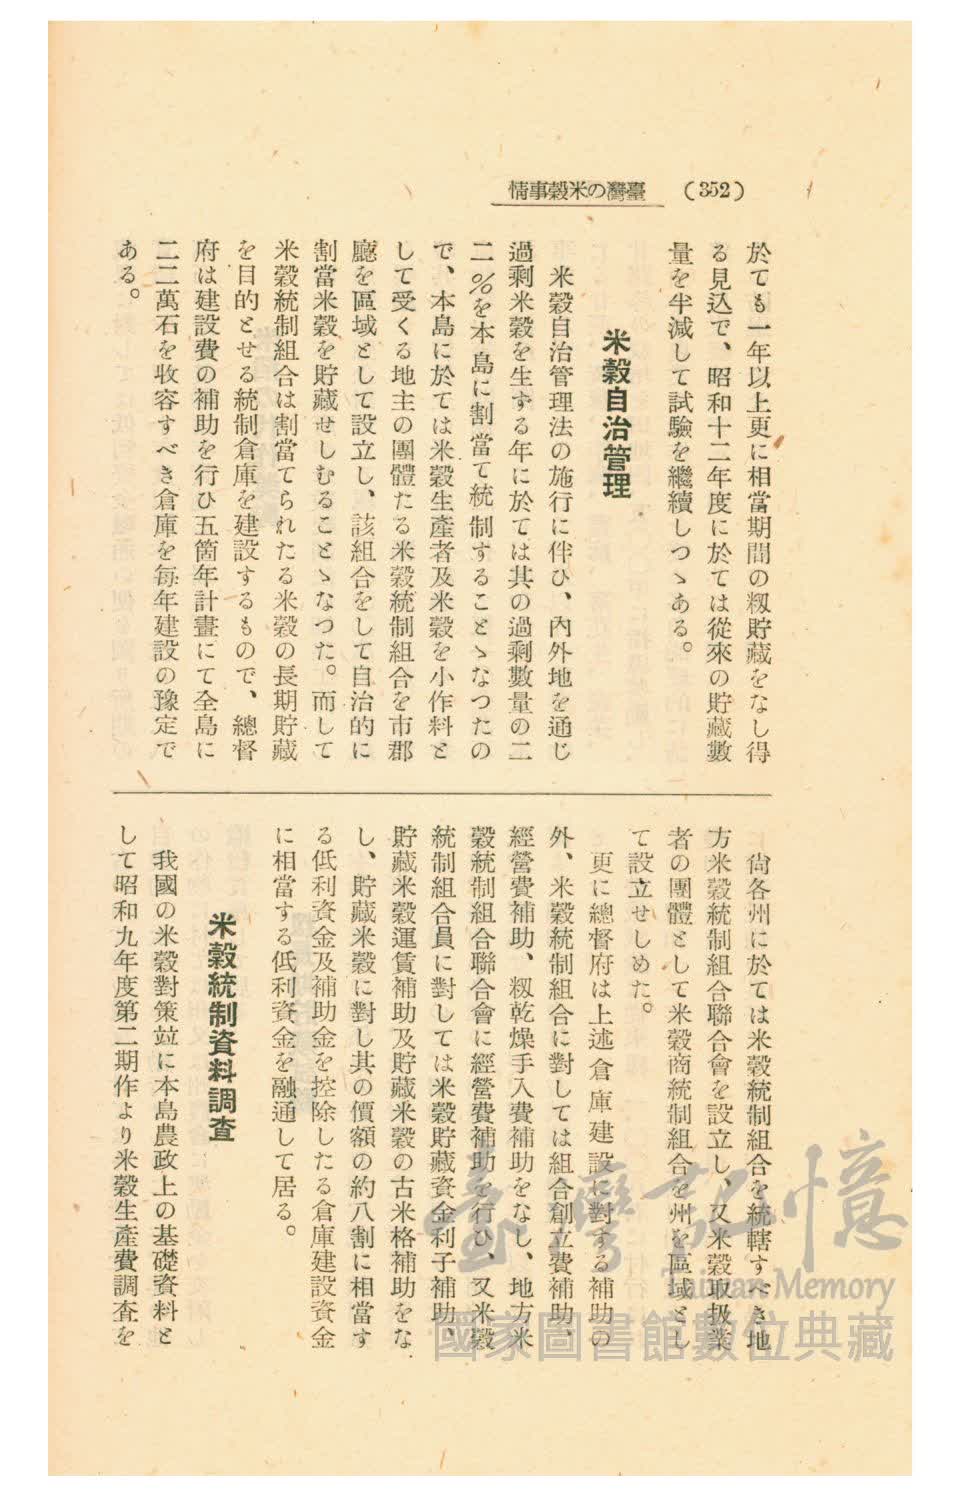 (352) 臺灣の米穀事情
於ても一年以上更に相當期間の籾貯藏をなし得
る見込で、昭和十二年度に於ては從來の貯藏數
量を半減して試驗を繼續しつゝある。
米穀自治管理
米穀自治管理法の施行に伴ひ、內外地を通じ
過剩米穀を生ずる年に於ては其の過剩數量の二
二%を本島に割當て統制することゝなつたの
で、本島に於ては米穀生產者及米穀を小作料と
して受くる地主の團體たる米穀統制組合を市郡
廳を區域として設立し、該組合をして自治的に
割當米穀を貯藏せしむることゝなつた。而して
米穀統制組合は割當てられたる米穀の長期貯藏
を目的とせる統制倉庫を建設するもので、總督
府は建設費の補助を行ひ五箇年計畫にて全島に
二二萬石を收容すべき倉庫を每年建設の豫定で
ある。
尙各州に於ては米穀統制組合を統轄すべき地
方米穀統制組合聯合會を設立し、又米穀取扱業
者の團體として米穀商統制組合を州を區域とし
て設立せしめた。
更に總督府は上述倉庫建設に對する補助の
外、米穀統制組合に對しては組合創立費補助、
經營費補助、籾乾燥手入費補助をなし、地方米
穀統制組合聯合會に經營費補助を行ひ、又米穀
統制組合員に對しては米穀貯藏資金利子補助、
貯藏米穀運賃補助及貯藏米穀の古米格補助をな
し、貯藏米穀に對し其の價額の約八割に相當す
る低利資金及補助金を控除したる倉庫建設資金
に相當する低利資金を融通して居る。
米穀統制資料調查
我國の米穀對策竝に本島農政上の基礎資料と
して昭和九年度第二期作より米穀生產費調查を
臺灣記憶
Taiwan Memory
國家圖書館數位典藏